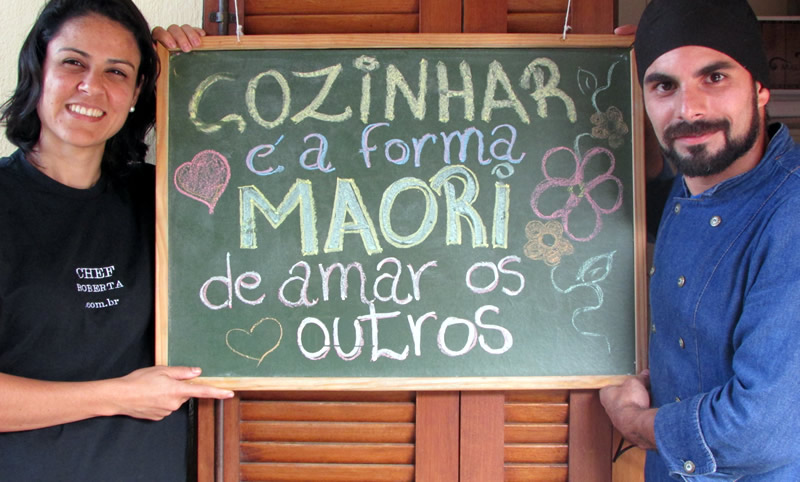 COZINHAR
é a forma
MAORi
de amar os
outros
CHEF
ROBERTA
.com.br